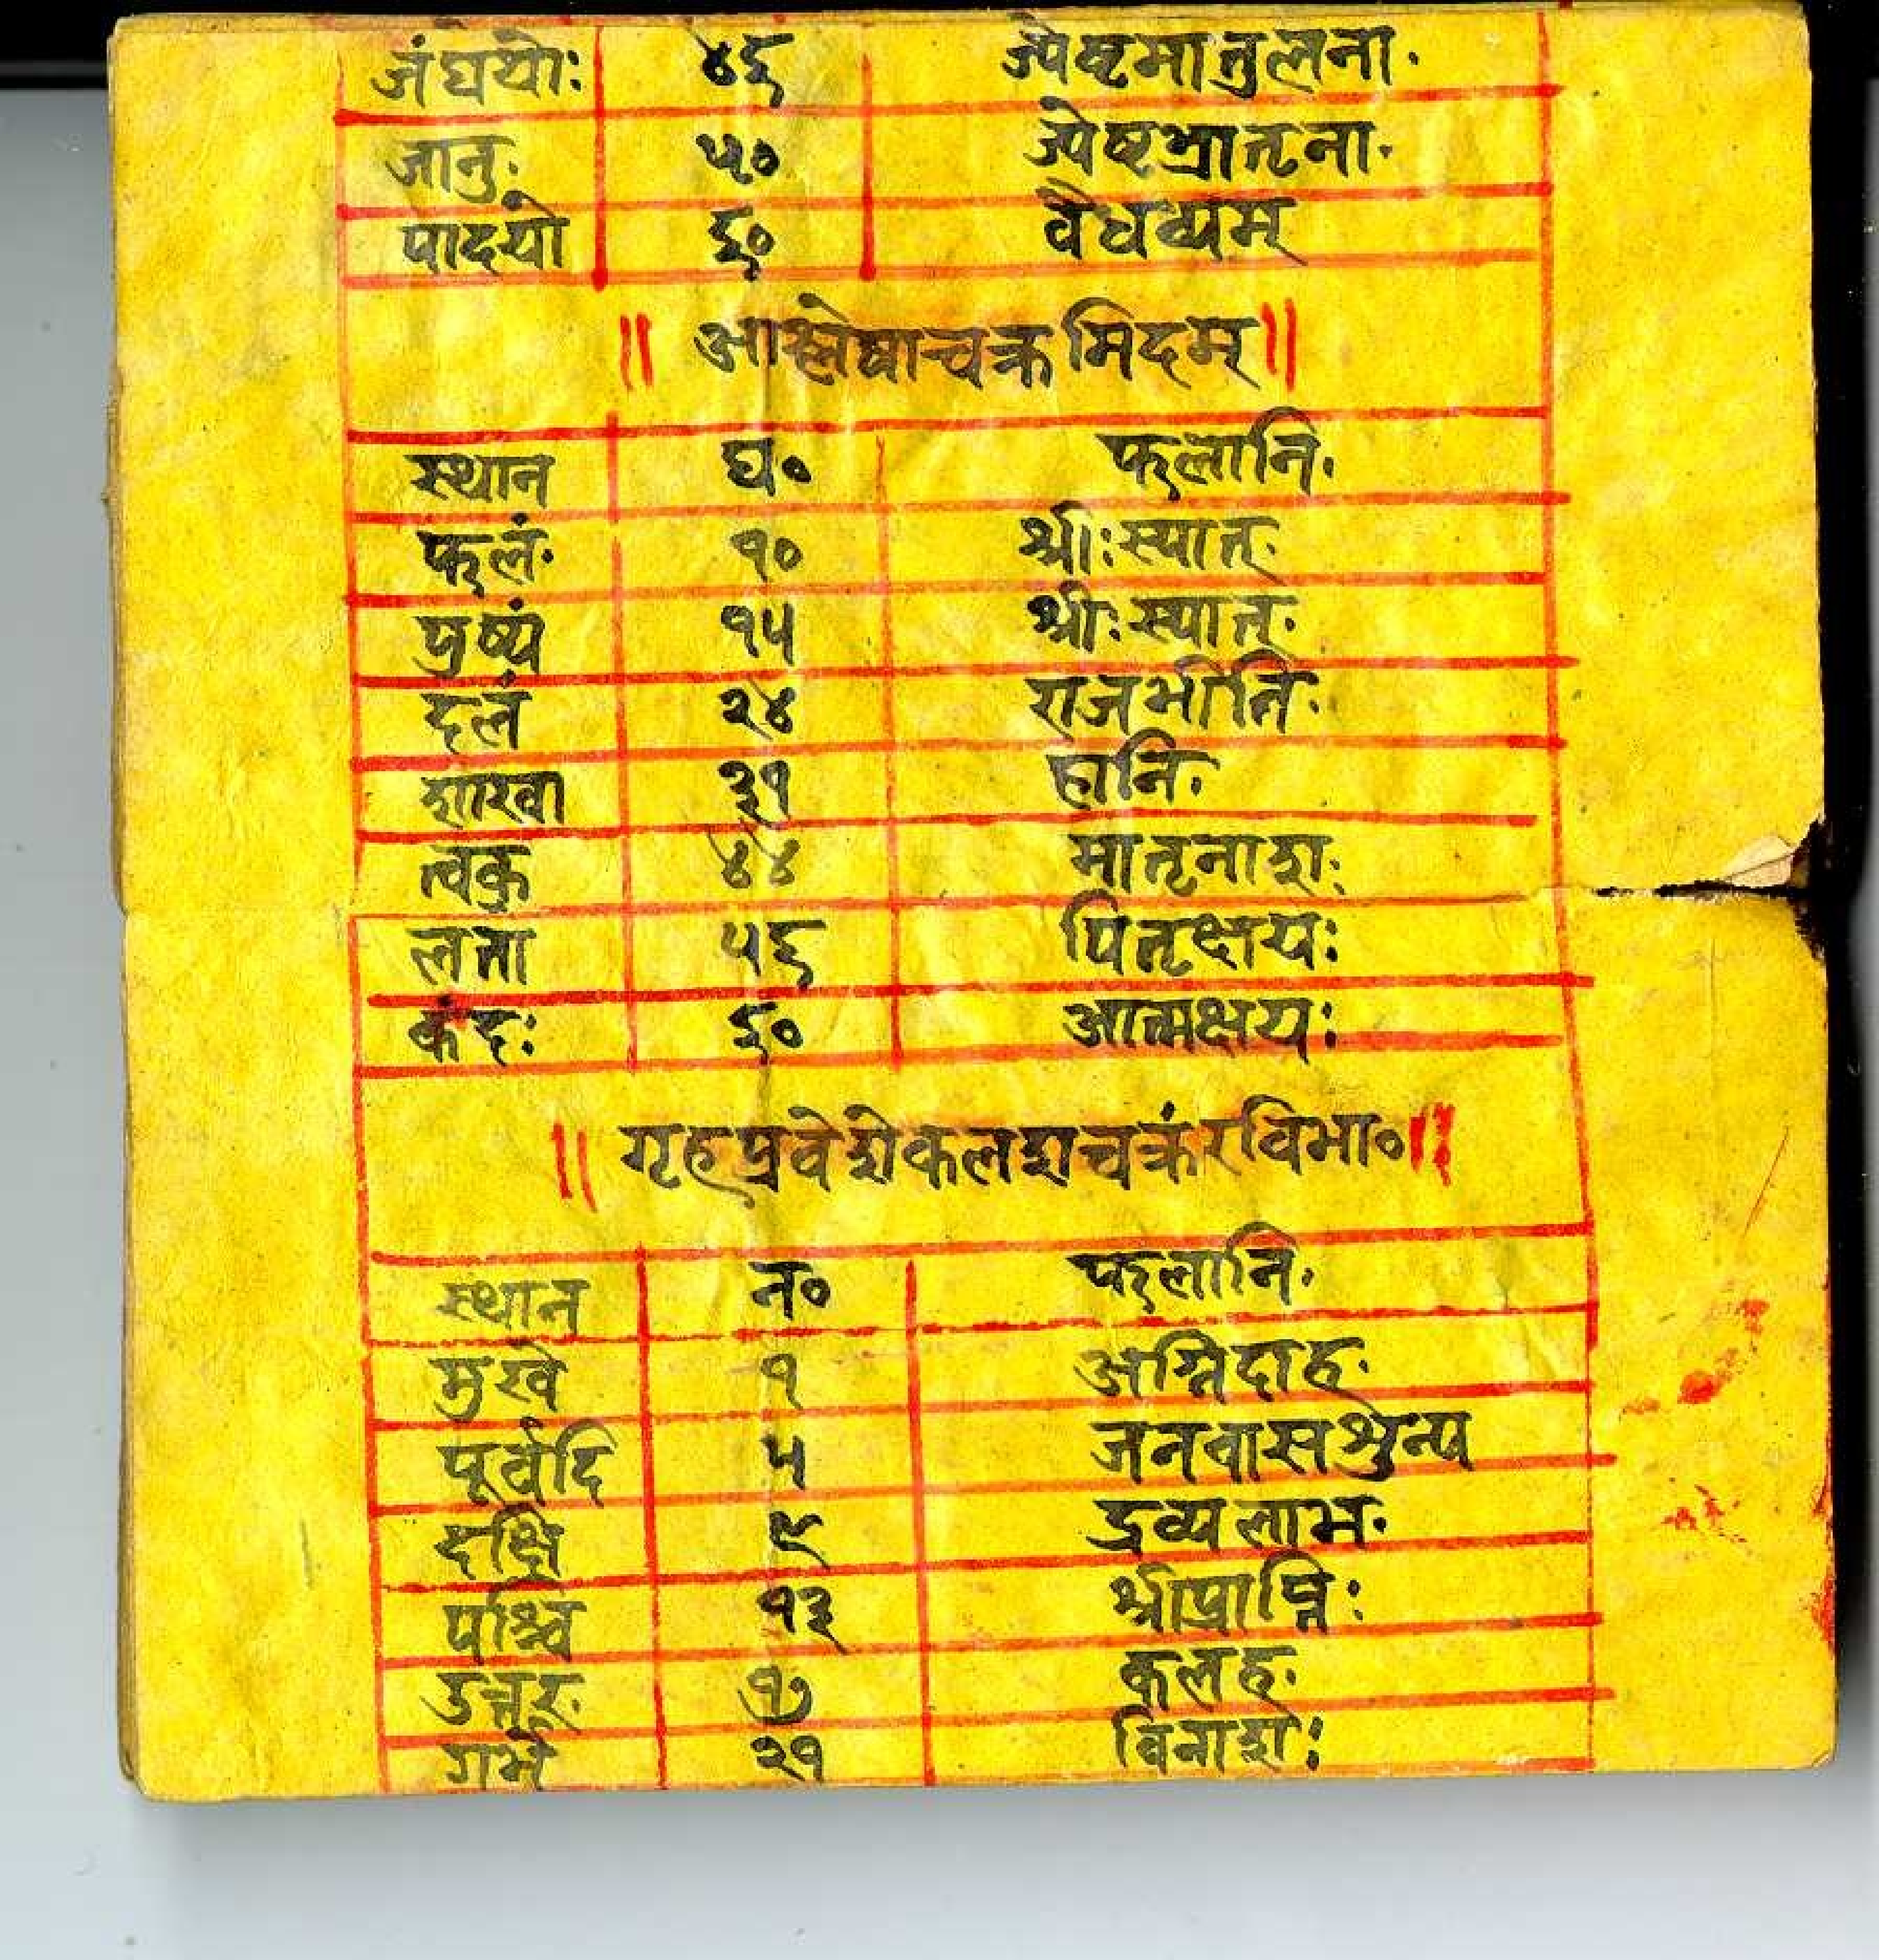 जंघयोः ४६ ज्येष्टमातुलना.
जानु. ५० ज्येष्टभ्रातृना.
पादयो ६० वैधव्यम्
॥ आश्लेषाचक्रमिदम् ॥
स्थान घ० फलानि.
फलं. १० श्रीःस्यात्.
पुष्पं १५ श्रीःस्यात्.
दलं २४ राजभीति.
शाखा ३१ हानि.
त्वक् ४४ मातृनाश.
लता ५६ पितृक्षयः
कंदः ६० आत्मक्षयः
॥ गृहप्रवेशेकलशचक्रंरविभा० ॥
स्थान न० फलानि.
मुखे १ अग्निदाह.
पूर्वदि ५ जनवासशुन्य
दक्षि ९ द्रव्यलाभ.
पश्चि १३ श्रीप्राप्तिः
उत्तर. १७ कलह.
गर्भ २१ विनाशः